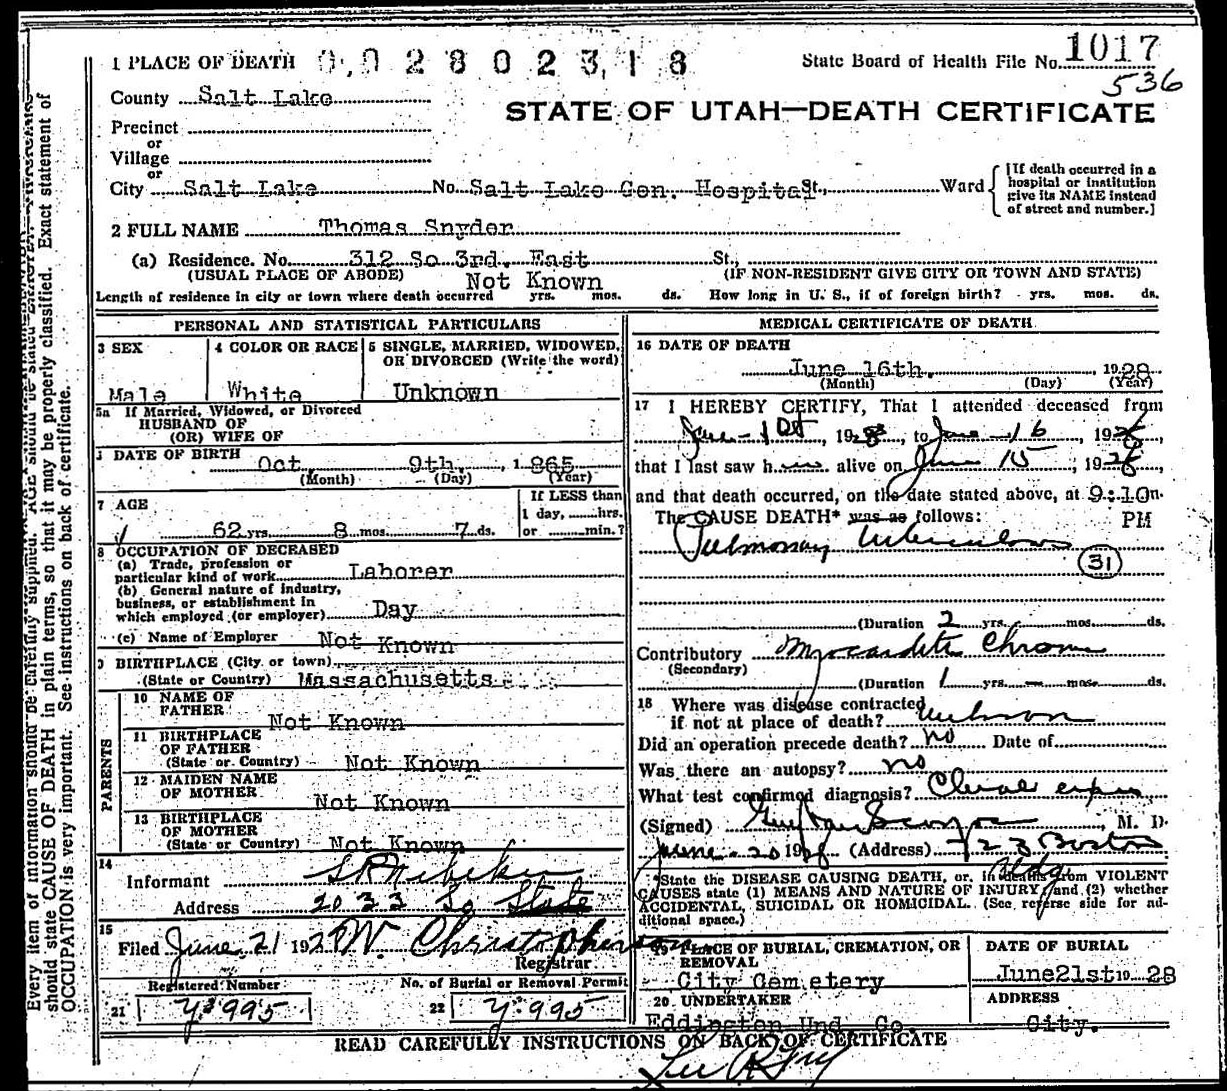 1 PLACE OF DEATH 0028023 18
State Board of Health File No. 1017
536
County Salt Lake
STATE OF UTAH—DEATH CERTIFICATE
Precinct
or
Village
or
City Salt Lake No. Salt Lake Gen. Hospital St., Ward
[If death occurred in a hospital or institution give its NAME instead of street and number.]
2 FULL NAME Thomas Snyder
(a) Residence. No. 312 So 3rd. East St.,
(USUAL PLACE OF ABODE) (IF NON-RESIDENT GIVE CITY OR TOWN AND STATE)
Not Known
Length of residence in city or town where death occurred yrs. mos. ds. How long in U. S., if of foreign birth? yrs. mos. ds.
PERSONAL AND STATISTICAL PARTICULARS
3 SEX
Male
4 COLOR OR RACE
White
5 SINGLE, MARRIED, WIDOWED, OR DIVORCED (Write the word)
Unknown
5a If Married, Widowed, or Divorced
HUSBAND OF
(OR) WIFE OF
DATE OF BIRTH
Oct. 9th. , 1 865
(Month) (Day) (Year)
7 AGE
62 yrs. 8 mos. 7 ds.
If LESS than
1 day, hrs.
or min.?
8 OCCUPATION OF DECEASED
(a) Trade, profession or
particular kind of work Laborer
(b) General nature of industry,
business, or establishment in
which employed (or employer) Day
(c) Name of Employer Not Known
9 BIRTHPLACE (City or town)
(State or Country) Massachusetts
PARENTS
10 NAME OF
FATHER Not Known
11 BIRTHPLACE
OF FATHER
(State or Country) Not Known
12 MAIDEN NAME
OF MOTHER Not Known
13 BIRTHPLACE
OF MOTHER
(State or Country) Not Known
14
Informant
Address 2033 So State
15
Filed June 21 192 W. Christopherson
Registrar
Registered Number
21 y-995
No. of Burial or Removal Permit
22 y-995
MEDICAL CERTIFICATE OF DEATH
16 DATE OF DEATH
June 16th. , 1928
(Month) (Day) (Year)
17 I HEREBY CERTIFY, That I attended deceased from
June 1st, 1928, to June 16, 1928,
that I last saw him alive on June 15, 1928,
and that death occurred, on the date stated above, at 9:10 m.
PM
The CAUSE DEATH* was as follows:
Pulmonary tuberculosis
31
(Duration 2 yrs. mos. ds.
Contributory Myocarditis Chronic
(Secondary)
(Duration 1 yrs. — mos. ds.
18 Where was disease contracted
if not at place of death? unknown
Did an operation precede death? no Date of
Was there an autopsy? no
What test confirmed diagnosis? Clinical
(Signed) , M. D.
June 20 1928 (Address) 723 Boston
Bldg
*State the DISEASE CAUSING DEATH, or, in deaths from VIOLENT
CAUSES state (1) MEANS AND NATURE OF INJURY, and (2) whether
ACCIDENTAL, SUICIDAL OR HOMICIDAL. (See reverse side for ad-
ditional space.)
19 PLACE OF BURIAL, CREMATION, OR
REMOVAL
City Cemetery
DATE OF BURIAL
June21st 19 28
20. UNDERTAKER
Eddington Und. Co.
ADDRESS
City.
READ CAREFULLY INSTRUCTIONS ON BACK OF CERTIFICATE
Every item of information should be carefully supplied. AGE should be stated EXACTLY.
should state CAUSE OF DEATH in plain terms, so that it may be properly classified. Exact statement of
OCCUPATION is very important. See instructions on back of certificate.